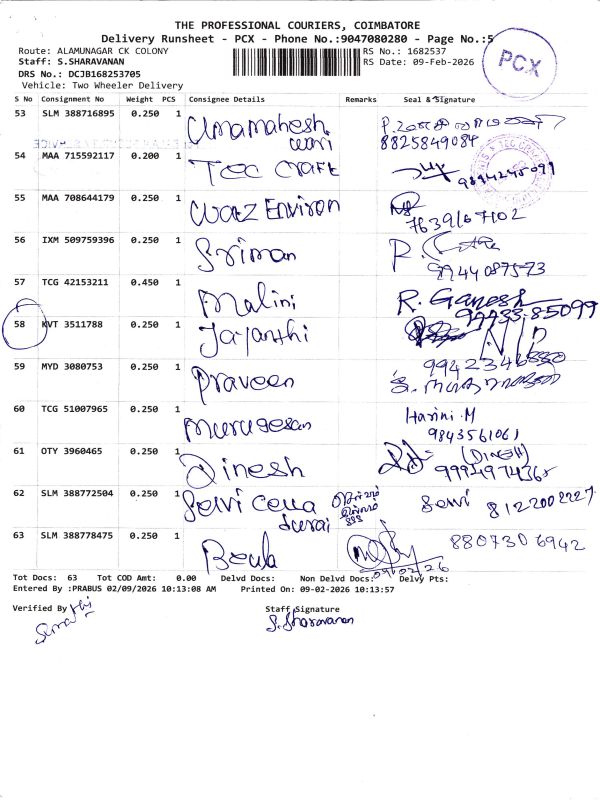 THE PROFESSIONAL COURIERS, COIMBATORE
Delivery Runsheet - PCX - Phone No.:9047080280 - Page No.:5
Route: ALAMUNAGAR CK COLONY
RS No.: 1682537
Staff: S.SHARAVANAN
RS Date: 09-Feb-2026
DRS No.: DCJB168253705
Vehicle: Two Wheeler Delivery
PCX
S No Consignment No Weight PCS Consignee Details Remarks Seal & Signature
53 SLM 388716895 0.250 1 Umamahesh
wari
8825849084
54 MAA 715592117 0.200 1 Tec Craft
9894245099
55 MAA 708644179 0.250 1 Watz Environ
7639167102
56 IXM 509759396 0.250 1 Sriman
9944087573
57 TCG 42153211 0.450 1 Malini R. Ganesh
99933-85099
58 KVT 3511788 0.250 1 Jayanthi
59 MYD 3080753 0.250 1 Praveen
60 TCG 51007965 0.250 1 Murugesan Harini.M
9843561061
61 OTY 3960465 0.250 1 Dinesh (DINESH)
9994974365
62 SLM 388772504 0.250 1 Selvi cella
durai
Selvi 8122002227
63 SLM 388778475 0.250 1 Beula 8807306942
09/02/26
Tot Docs: 63 Tot COD Amt: 0.00 Delvd Docs: Non Delvd Docs: Delvy Pts:
Entered By :PRABUS 02/09/2026 10:13:08 AM Printed On: 09-02-2026 10:13:57
Verified By
Staff Signature
S.Sharavanan